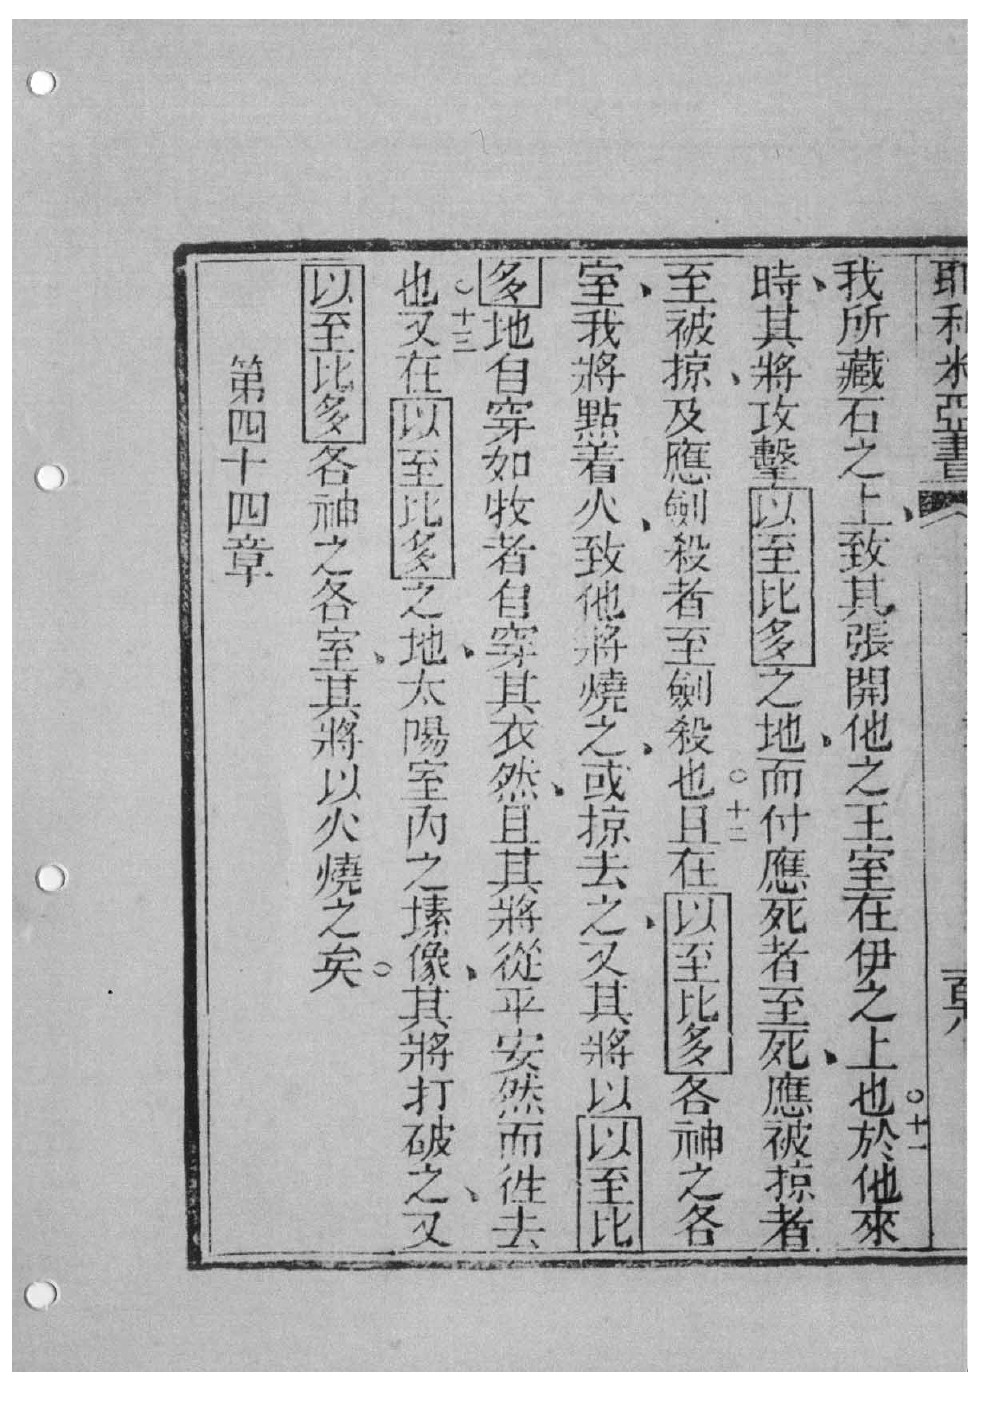 耶利米亞書
我所藏石之上、致其張開他之王室在伊之上也。十一於他來
時、其將攻擊以至比多之地、而付應死者至死、應被掠者
至被掠、及應劍殺者至劍殺也。十二且在以至比多各神之各
室、我將點着火、致他將燒之、或掠去之、又其將以以至比
多地自穿如牧者自穿其衣然、且其將從平安然而徃去
也。十三又在以至比多之地、太陽室內之塐像、其將打破之、又
以至比多各神之各室、其將以火燒之矣。
第四十四章